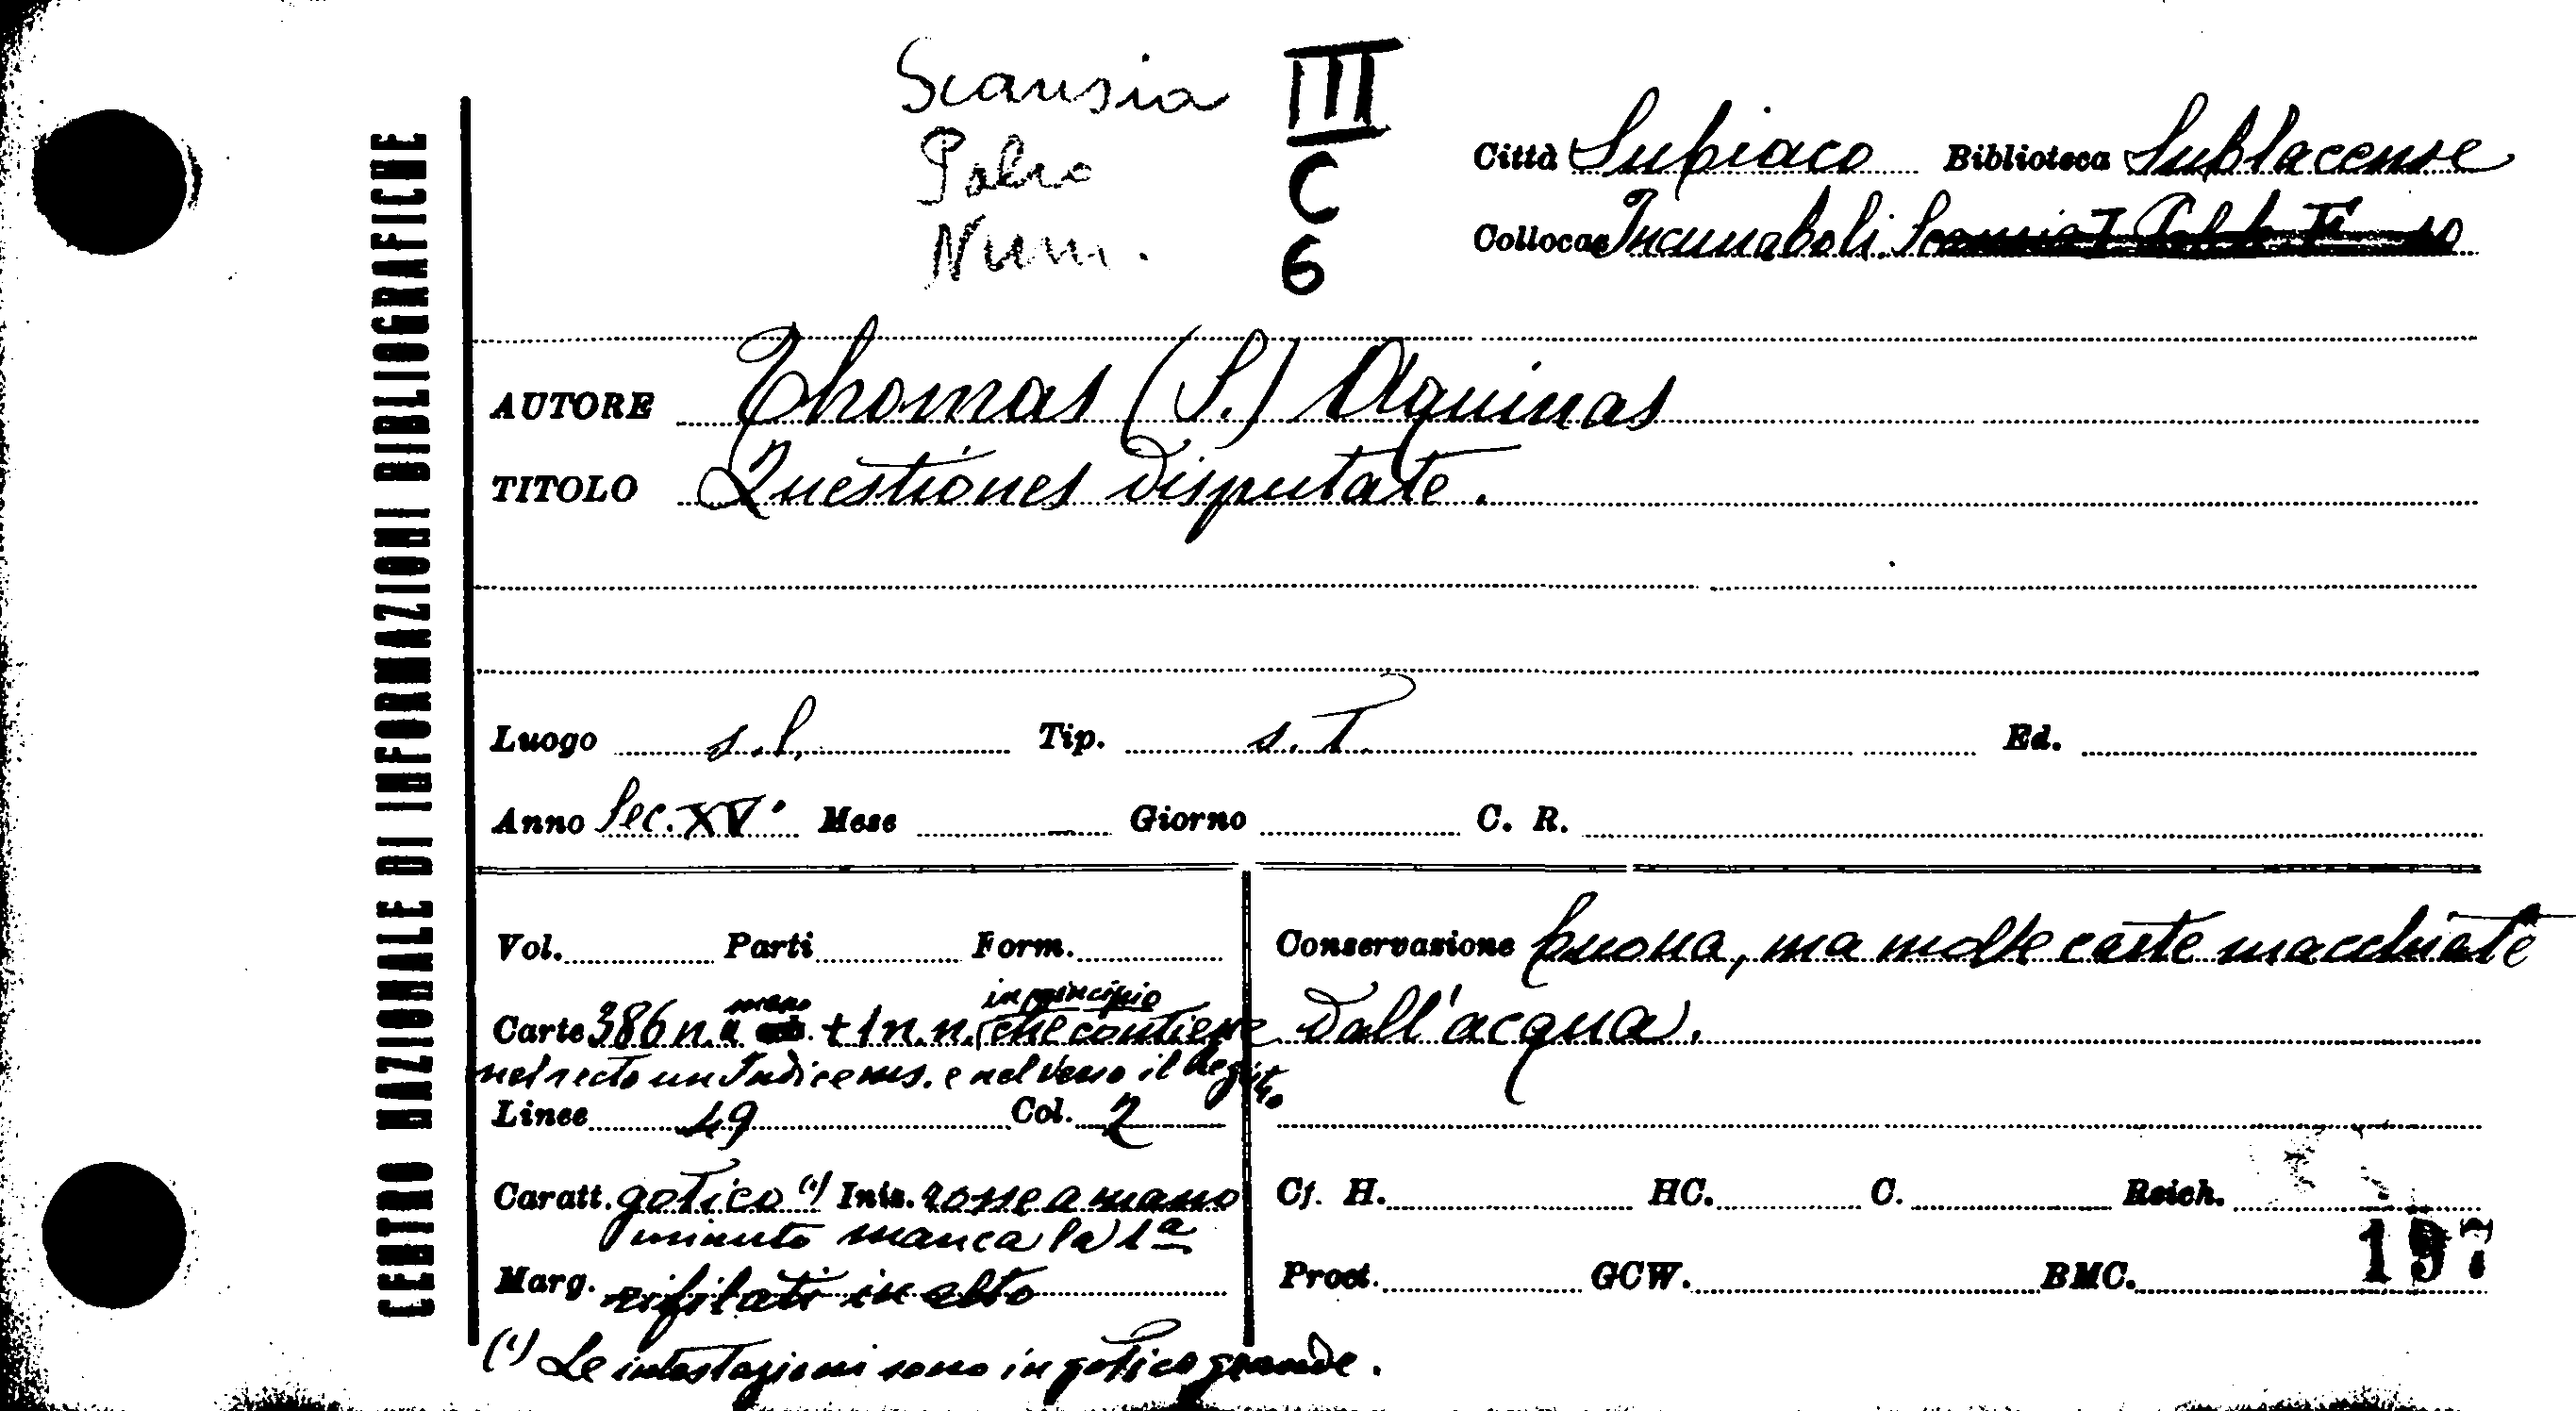 CENTRO NAZIONALE DI INFORMAZIONI BIBLIOGRAFICHE
Scansia III
Palco C
Num. 6
Città Subiaco Biblioteca Sublacense
Collocaz Incunaboli.
AUTORE Thomas (S.) Aquinas
TITOLO Questiones disputate.
Luogo s.l. Tip. s.T. Ed.
Anno Sec. XV. Mese Giorno C. R.
Vol. Parti Form.
Conservazione buona, ma molte carte macchiate
dall'acqua.
Carte 386 n. a mano + 1 n.n. in principio che contiene
nel recto un Indice ms. e nel verso il
Linee 49 Col. 2
Caratt. gotico (1) Iniz. rosse a mano
manca la 1a
Marg. rifilati in alto
Cf. H. HC. C. Reich.
Proct. GCW. BMC. 197
(1) Le intestazioni sono in gotico grande.